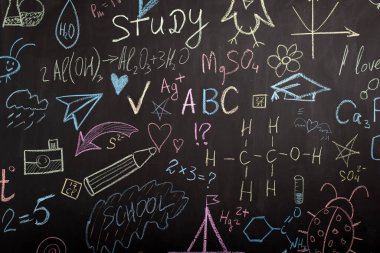 STUDY
H₂O
2Al(OH)₃ Al₂O₃+3H₂O
MgSO₄
I love
Ag⁺
ABC
Ca₃
S²⁻
!?
2×3=?
H H
H-C-C-O-H
H H
SO₄²⁻
SCHOOL
2=5
Hg₂²⁺